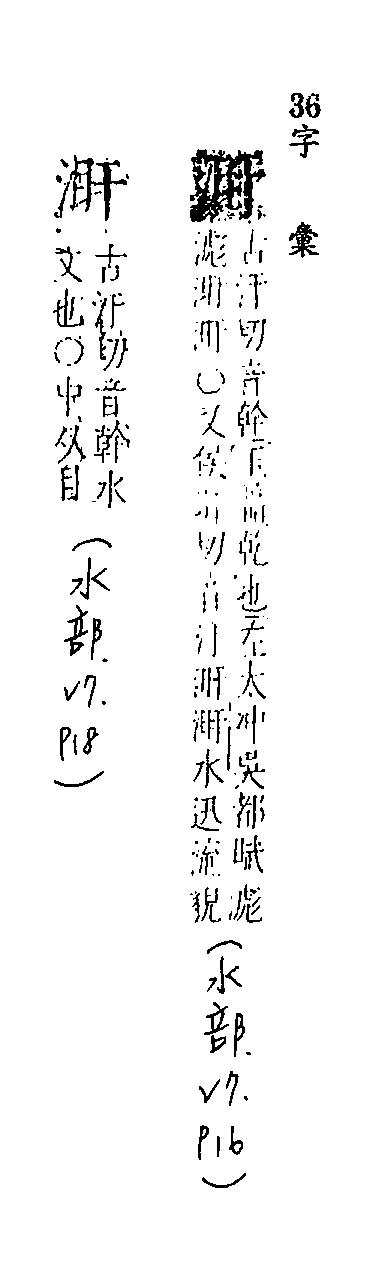 36字 彙
古汗切音幹 乾也 太冲吳都賦滮
滮 〇又侯 切音汗 水迅流貌
(水部.v7.p16)
古汗切音幹水
文也〇中从目
(水部.v7.p18)